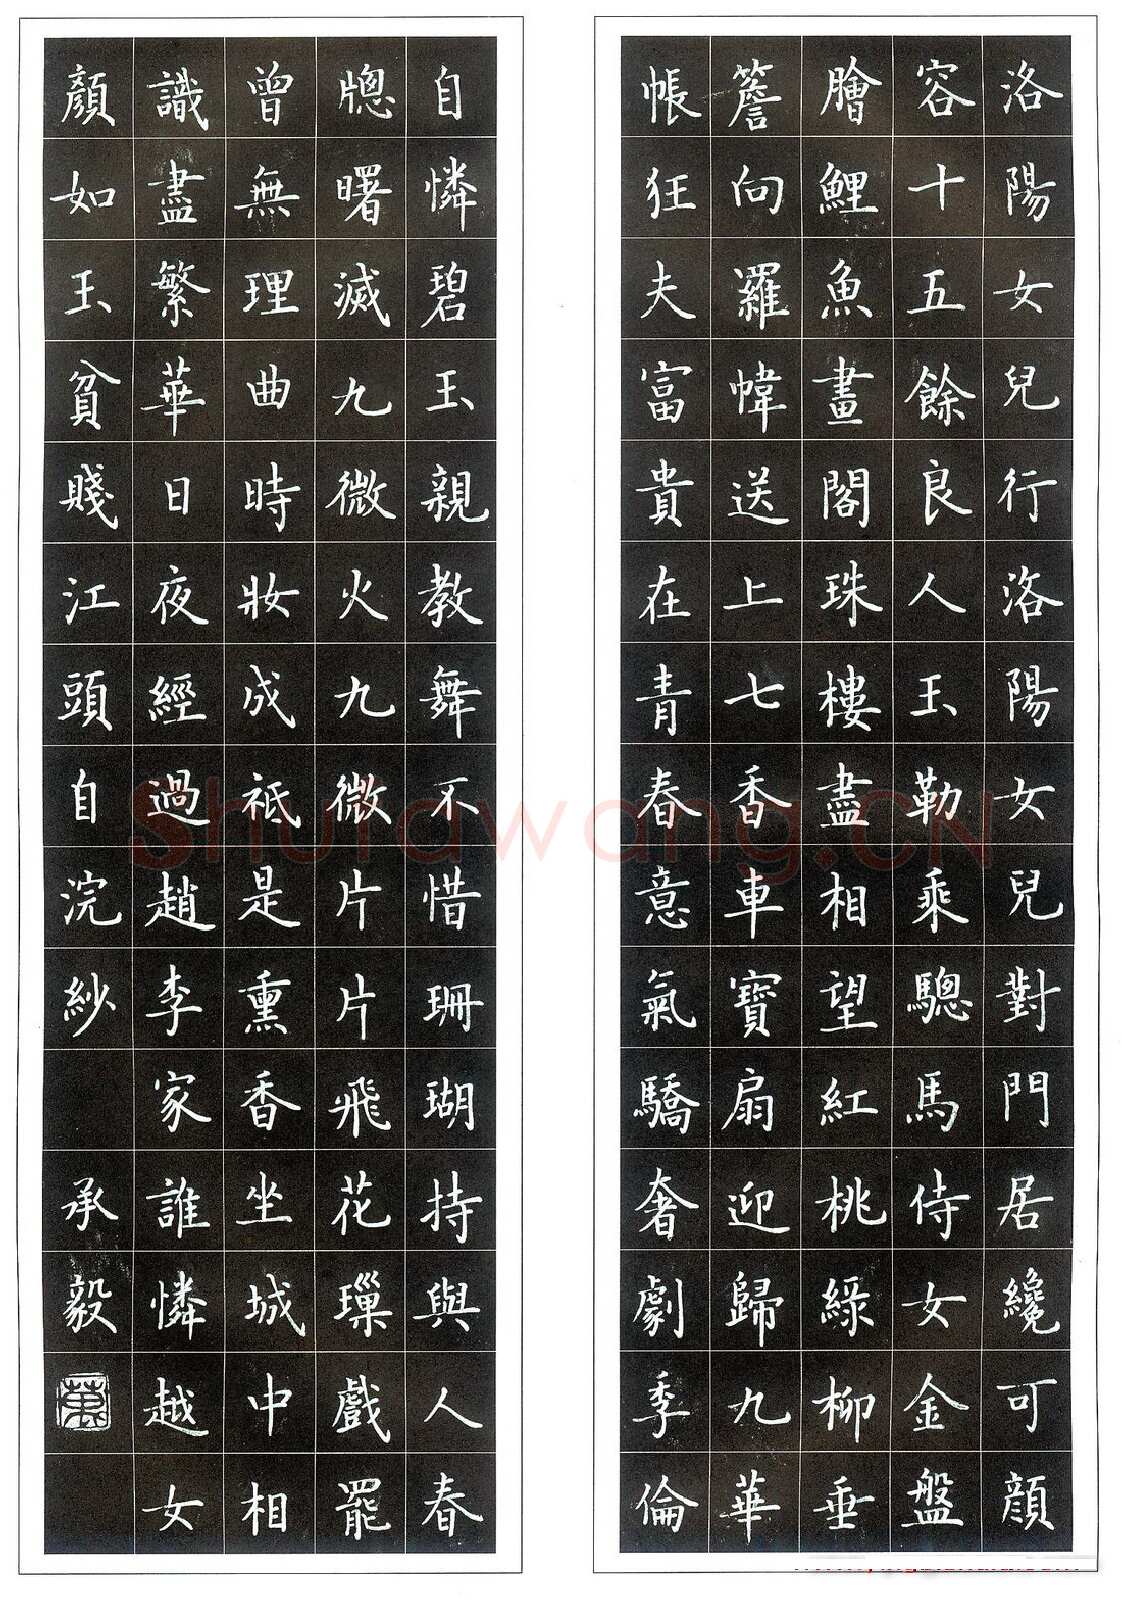 洛陽女兒行洛陽女兒對門居纔可顔
容十五餘良人玉勒乘驄馬侍女金盤
膾鯉魚畫閣珠樓盡相望紅桃綠柳垂
簷向羅幃送上七香車寶扇迎歸九華
帳狂夫富貴在青春意氣驕奢劇季倫
自憐碧玉親教舞不惜珊瑚持與人春
牕曙滅九微火九微片片飛花璅戲罷
曾無理曲時妝成祗是熏香坐城中相
識盡繁華日夜經過趙李家誰憐越女
顏如玉貧賤江頭自浣紗 承毅
Shufawang.CN